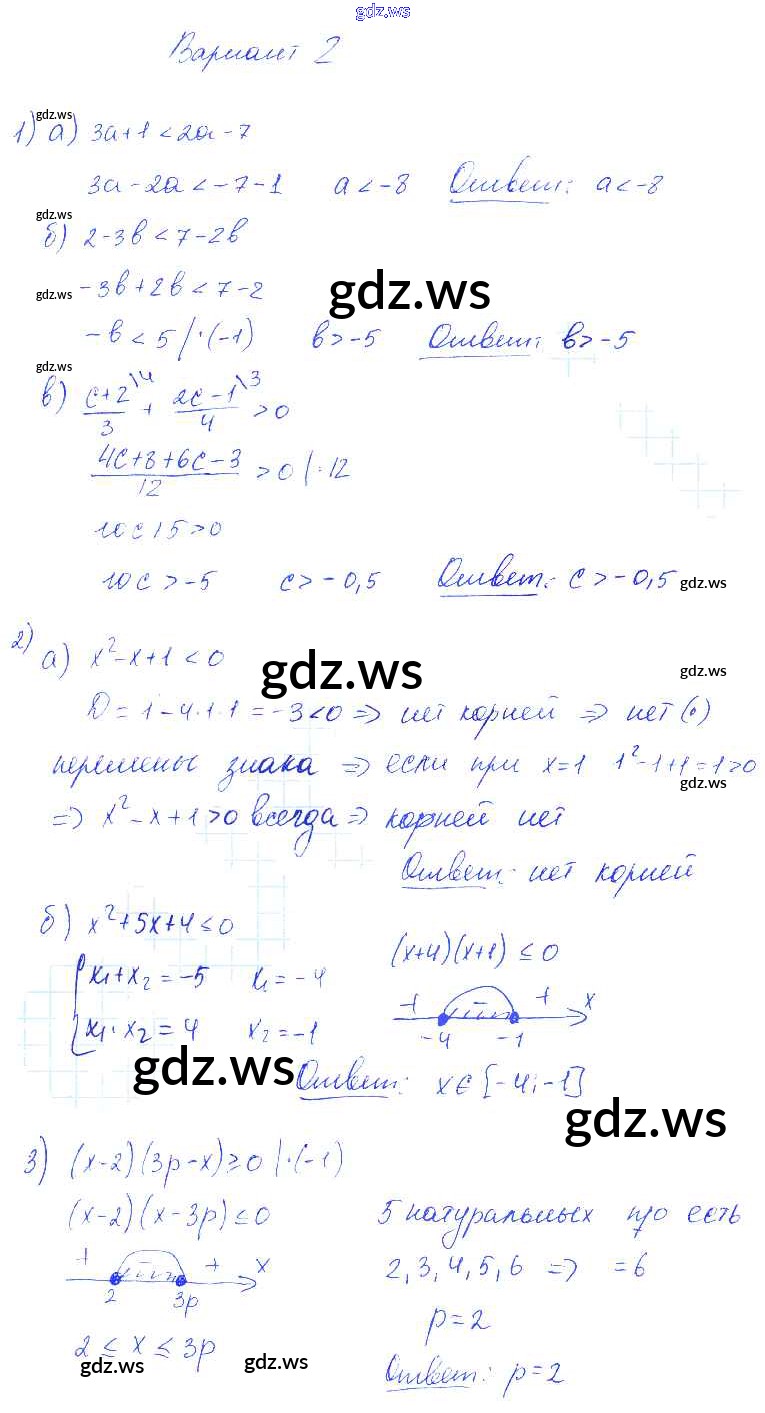 gdz.ws
Вариант 2
gdz.ws
1) а) 3a+1<2a-7
3a-2a<-7-1 a<-8 Ответ: a<-8
gdz.ws
б) 2-3b<7-2b
gdz.ws -3b+2b<7-2 gdz.ws
-b<5 |·(-1) b>-5 Ответ: b>-5
gdz.ws
в) (c+2)/3 \4 + (2c-1)/4 \3 >0
(4c+8+6c-3)/12 >0 |·12
10c+5>0
10c>-5 c>-0,5 Ответ: c>-0,5 gdz.ws
2) а) x²-x+1<0 gdz.ws gdz.ws
D=1-4·1·1=-3<0 => нет корней => нет (·)
перемены знака => если при x=1 1²-1+1=1>0
gdz.ws
=> x²-x+1>0 всегда => корней нет
Ответ: нет корней
б) x²+5x+4≤0
(x+4)(x+1)≤0
{x₁+x₂=-5 x₁=-4
x₁·x₂=4 x₂=-1
+ - + x
-4 -1
gdz.ws Ответ: x∈[-4;-1]
gdz.ws
3) (x-2)(3p-x)≥0 |·(-1)
(x-2)(x-3p)≤0 5 натуральных то есть
+ - + x 2,3,4,5,6 => =6
2 3p
p=2
2≤x≤3p
gdz.ws gdz.ws Ответ: p=2